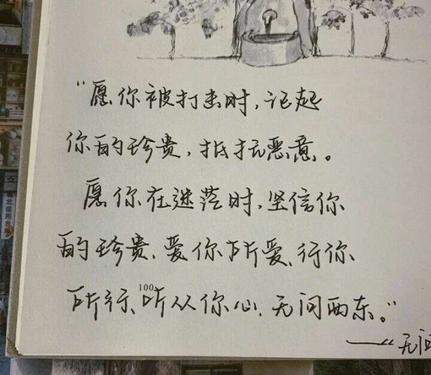 “愿你被打击时，记起
你的珍贵，抵抗恶意。
愿你在迷茫时，坚信你
的珍贵，爱你所爱，行你
所行，听从你心，无问西东。”
100
——“无问